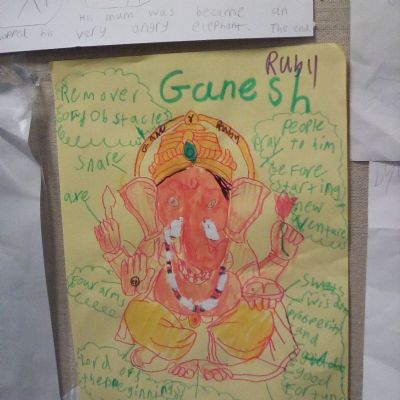 His mum was became an
his very angry elephant. The end.
Ruby
Ganesh
Remover
of Obstacles
snare
axe
Four arms
lord of
the beginning
People
Pray to him
Before
starting
new
venture
wisdom
prosperity
and
good
Fortune